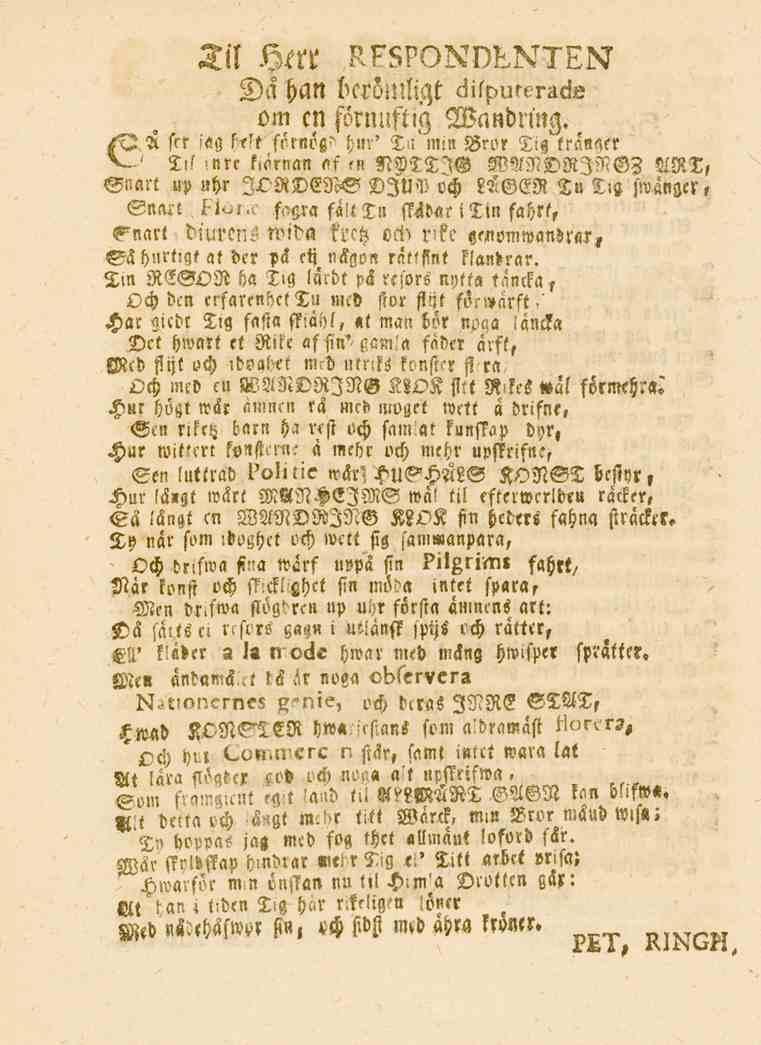 Til Herr RESPONDENTEN
Då han berömligt disputerade
om en förnuftig Wandring.
Så ser jag helt förnögd hur' Tu min Bror Tig tränger
Til inre kiärnan af en NYTTIG WANDRINGZ ART,
Snart up uhr JORDENS DJUP och LÄGER Tu Tig swänger,
Snart Floræ fagra fält Tu skådar i Tin fahrt,
Snart diurens wida kretz och rike genomwandrar,
Så hurtigt at der på eij någon rättsint klandrar.
Tin RESOR ha Tig lärdt på resors nytta täncka,
Och den erfarenhet Tu med stor flijt förwärft,
Har giedt Tig fasta skiähl, at man bör noga läncka
Det hwart et Rike af sin' gamla fäder ärft,
Med flijt och idoghet med utriks konster flera,
Och med en WANDRING KLOK sitt Rikes wäl förmehra.
Hur högt wår ämnen rå med moget wett å drifne,
Sen rikets barn ha rest och samlat kunskap dyr,
Hur wittert konsterne å mehr och mehr upskrifne,
Sen luttrad Politie wår HUSHÅLS KONST bestyr,
Hur långt wårt MANHEIMS wäl til efterwerlden räcker,
Så långt en WANDRING KLOK sin heders fahna sträcker.
Ty när som idoghet och wett sig sammanpara,
Och drifwa sina wärf uppå sin Pilgrims fahrt,
När konst och skicklighet sin möda intet spara,
Men drifwa slögderen up uhr första ämnens art:
Då sätts ei resors gagn i utlänsk spijs och rätter,
Ell' kläder a la mode hwar med mång hwisper sprätter.
Men ändamålet då är noga observera
Nationernes genie, och deras INRE STAT,
Hwad KONSTER hwarjestans som aldramäst florera,
Och hur Commercen står, samt intet wara lat
At lära slögder god och noga alt upskrifwa,
Som framgient egit land til ALLMÄNT GAGN kan blifwa.
Alt detta och långt mehr titt Wärck, min Bror månd wisa;
Ty hoppas jag med fog thet allmänt loford får.
Wår skyldskap hindrar mehr Tig el' Titt arbet prisa;
Hwarför min önskan nu til Himla Drotten går:
At han i tiden Tig här rikeligen löner
Med nådehåfwor sin, och sidst med ähra kröner.
PET. RINGH.